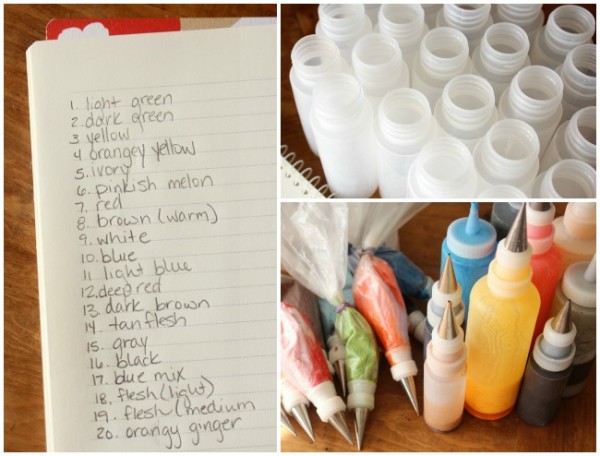 1. light green
2. dark green
3 yellow
4. orangey yellow
5. ivory
6. pinkish melon
7. red
8. brown (warm)
9. white
10. blue
11. light blue
12. deep red
13. dark brown
14. tan flesh
15. gray
16. black
17. blue mix
18. flesh (light)
19. flesh (medium
20. orangy ginger